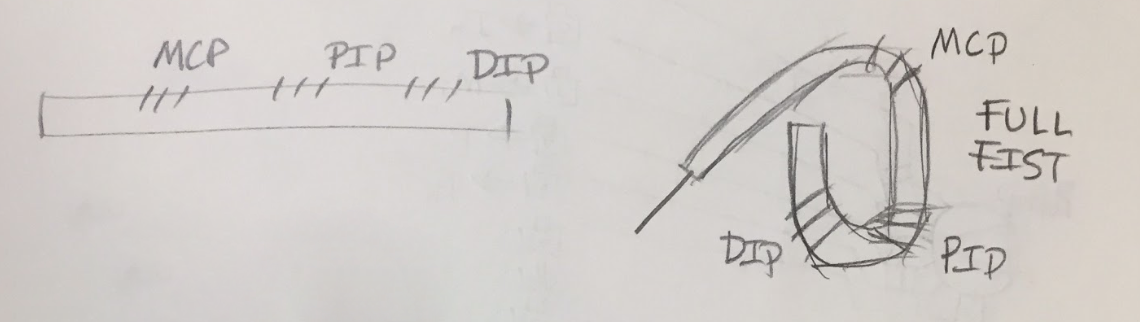 MCP PIP DIP
MCP
FULL
FIST
DIP PID